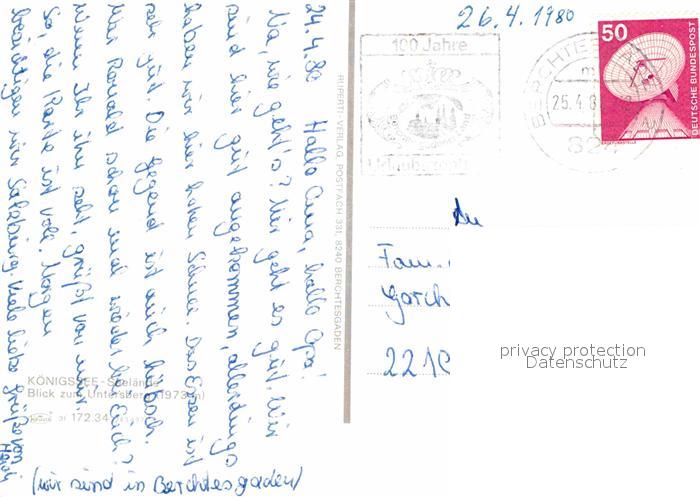 24.4.80 Hallo Oma, hallo Opa!
Na, wie geht's? Mir geht es gut. Wir
sind hier gut angekommen, allerdings
haben wir hier hohen Schnee. Das Essen ist
sehr gut. Die Gegend ist auch hübsch.
War Ronald schon mal wieder bei Euch?
Wenn Ihr ihn seht, grüßt von mir.
So, die Karte ist voll. Morgen
besichtigen wir Salzburg. Viele liebe Grüße von
(wir sind in Berchtesgaden)
KÖNIGSSEE - Seelände
Blick zum Untersberg (1973 m)
172.34
RUPERTI-VERLAG, POSTFACH 331, 8240 BERCHTESGADEN
26.4.1980
100 Jahre
BERCHTES
25.4.8
824
50
DEUTSCHE BUNDESPOST
An
Fam.
Gorch
221
privacy protection
Datenschutz